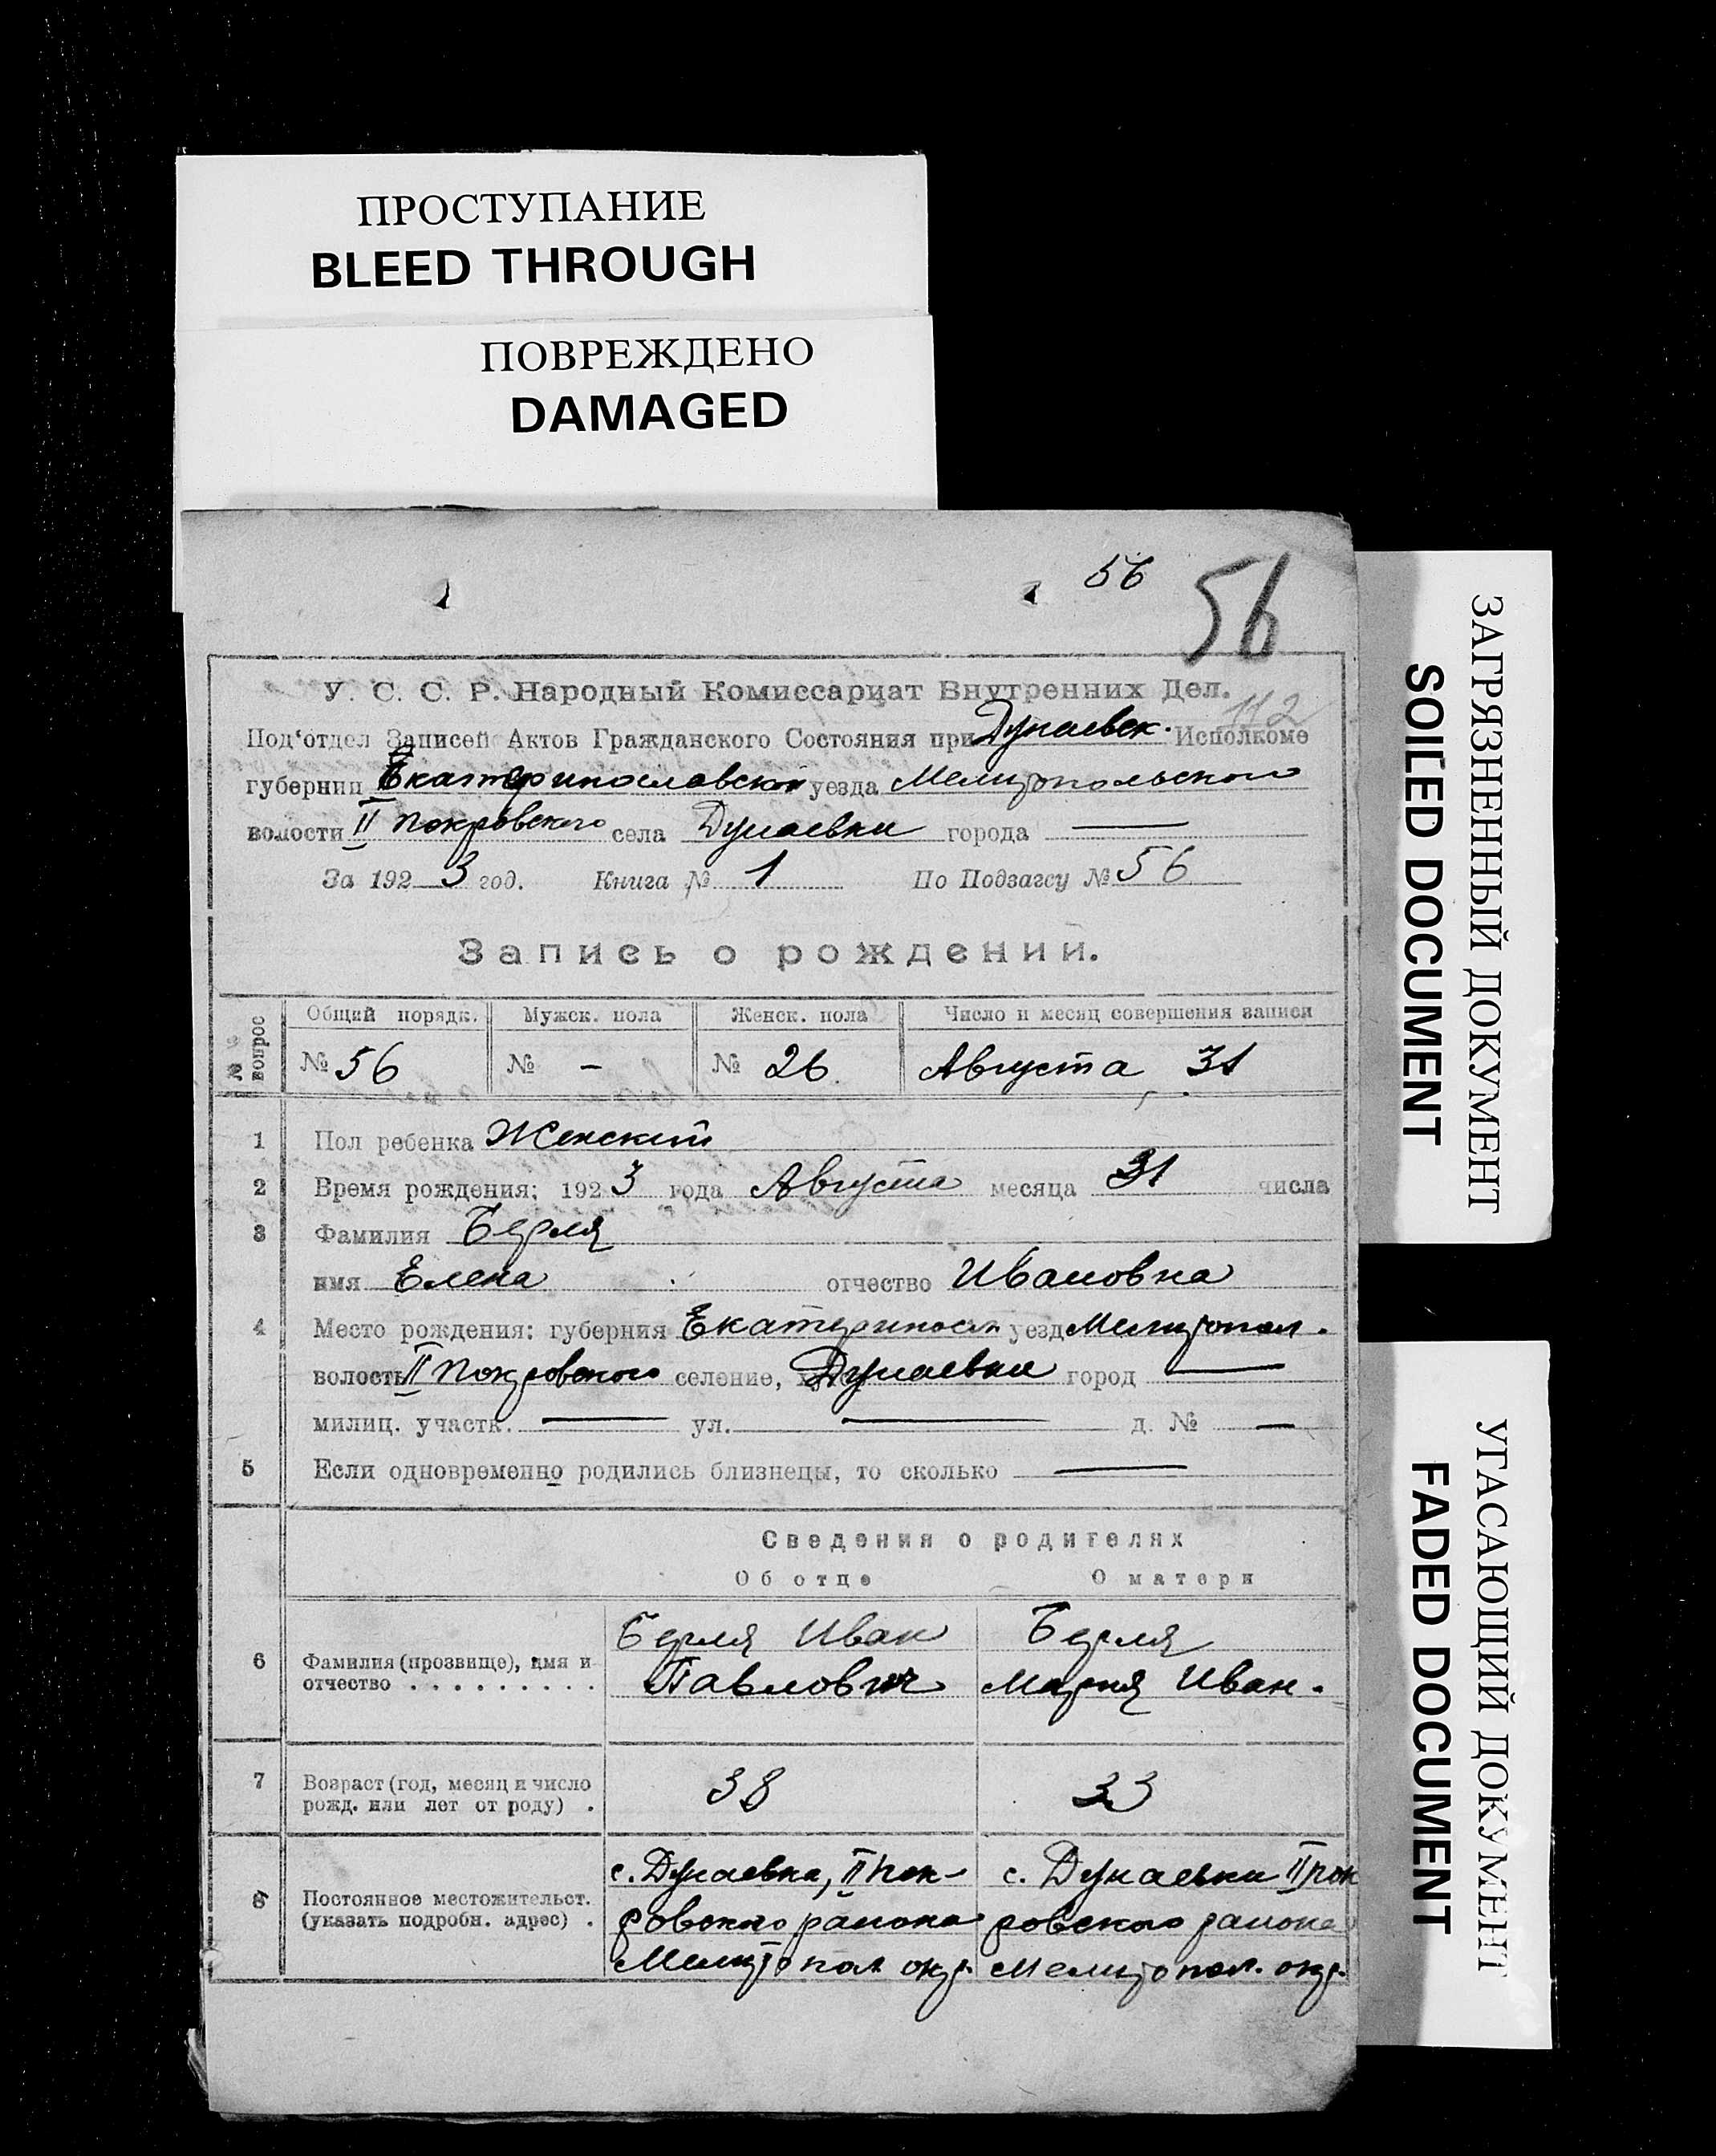 ПРОСТУПАНИЕ
BLEED THROUGH
ПОВРЕЖДЕНО
DAMAGED
56
56
У. С. С. Р. Народный Комиссариат Внутренних Дел.
112
Под'отдел Записей Актов Гражданского Состояния при Дунаевск. Исполкоме
губернии Екатеринославской уезда Мелитопольского
волости II Покровского села Дунаевки города —
За 1923 год. Книга № 1 По Подзагсу № 56
Запись о рождении.
№№ вопрос
Общий порядк. Мужск. пола Женск. пола Число и месяц совершения записи
№ 56 № - № 26 Августа 31
1 Пол ребенка Женский
2 Время рождения: 1923 года Августа месяца 31 числа
3 Фамилия Берля
имя Елена отчество Ивановна
4 Место рождения: губерния Екатериносл уезд Мелитопол.
волость II Покровского селение, Дунаевки город —
милиц. участк. — ул. — д. № —
5 Если одновременно родились близнецы, то сколько —
Сведения о родителях
Об отце О матери
6 Фамилия (прозвище), имя и отчество . . . . . . . . .
Берля Иван
Павлович
Берля
Мария Иван.
7 Возраст (год, месяц и число рожд. или лет от роду) .
38 33
8 Постоянное местожительст. (указать подробн. адрес) .
с. Дунаевка, II Пок-
ровского района
Мелитопол окр.
с. Дунаевки II Пок
ровского района
Мелитопол. окр.
ЗАГРЯЗНЕННЫЙ ДОКУМЕНТ
SOILED DOCUMENT
УГАСАЮЩИЙ ДОКУМЕНТ
FADED DOCUMENT